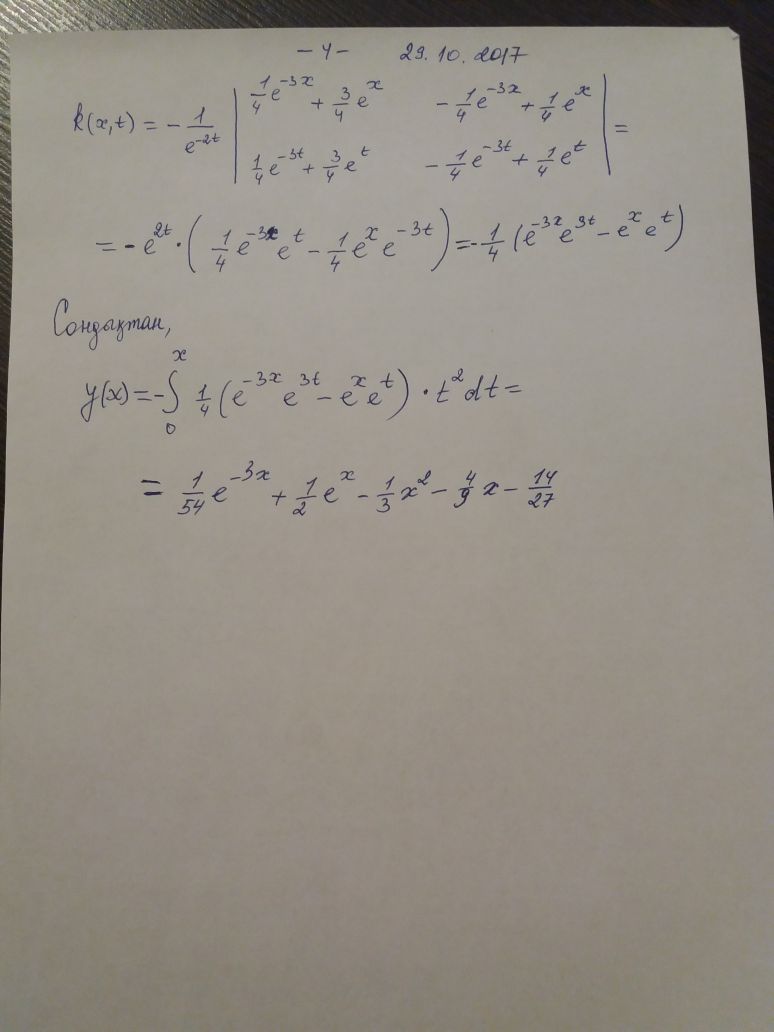 – 4 – 29.10.2017
k(x,t) = - \frac{1}{e^{-2t}} \begin{vmatrix} \frac{1}{4}e^{-3x} + \frac{3}{4}e^{x} & -\frac{1}{4}e^{-3x} + \frac{1}{4}e^{x} \\ \frac{1}{4}e^{-3t} + \frac{3}{4}e^{t} & -\frac{1}{4}e^{-3t} + \frac{1}{4}e^{t} \end{vmatrix} =
= - e^{2t} \cdot \left( \frac{1}{4}e^{-3x}e^{t} - \frac{1}{4}e^{x}e^{-3t} \right) = -\frac{1}{4} (e^{-3x}e^{3t} - e^{x}e^{t})
Сондықтан,
y(x) = - \int_{0}^{x} \frac{1}{4} (e^{-3x}e^{3t} - e^{x}e^{t}) \cdot t^{2} dt =
= \frac{1}{54}e^{-3x} + \frac{1}{2}e^{x} - \frac{1}{3}x^{2} - \frac{4}{9}x - \frac{14}{27}